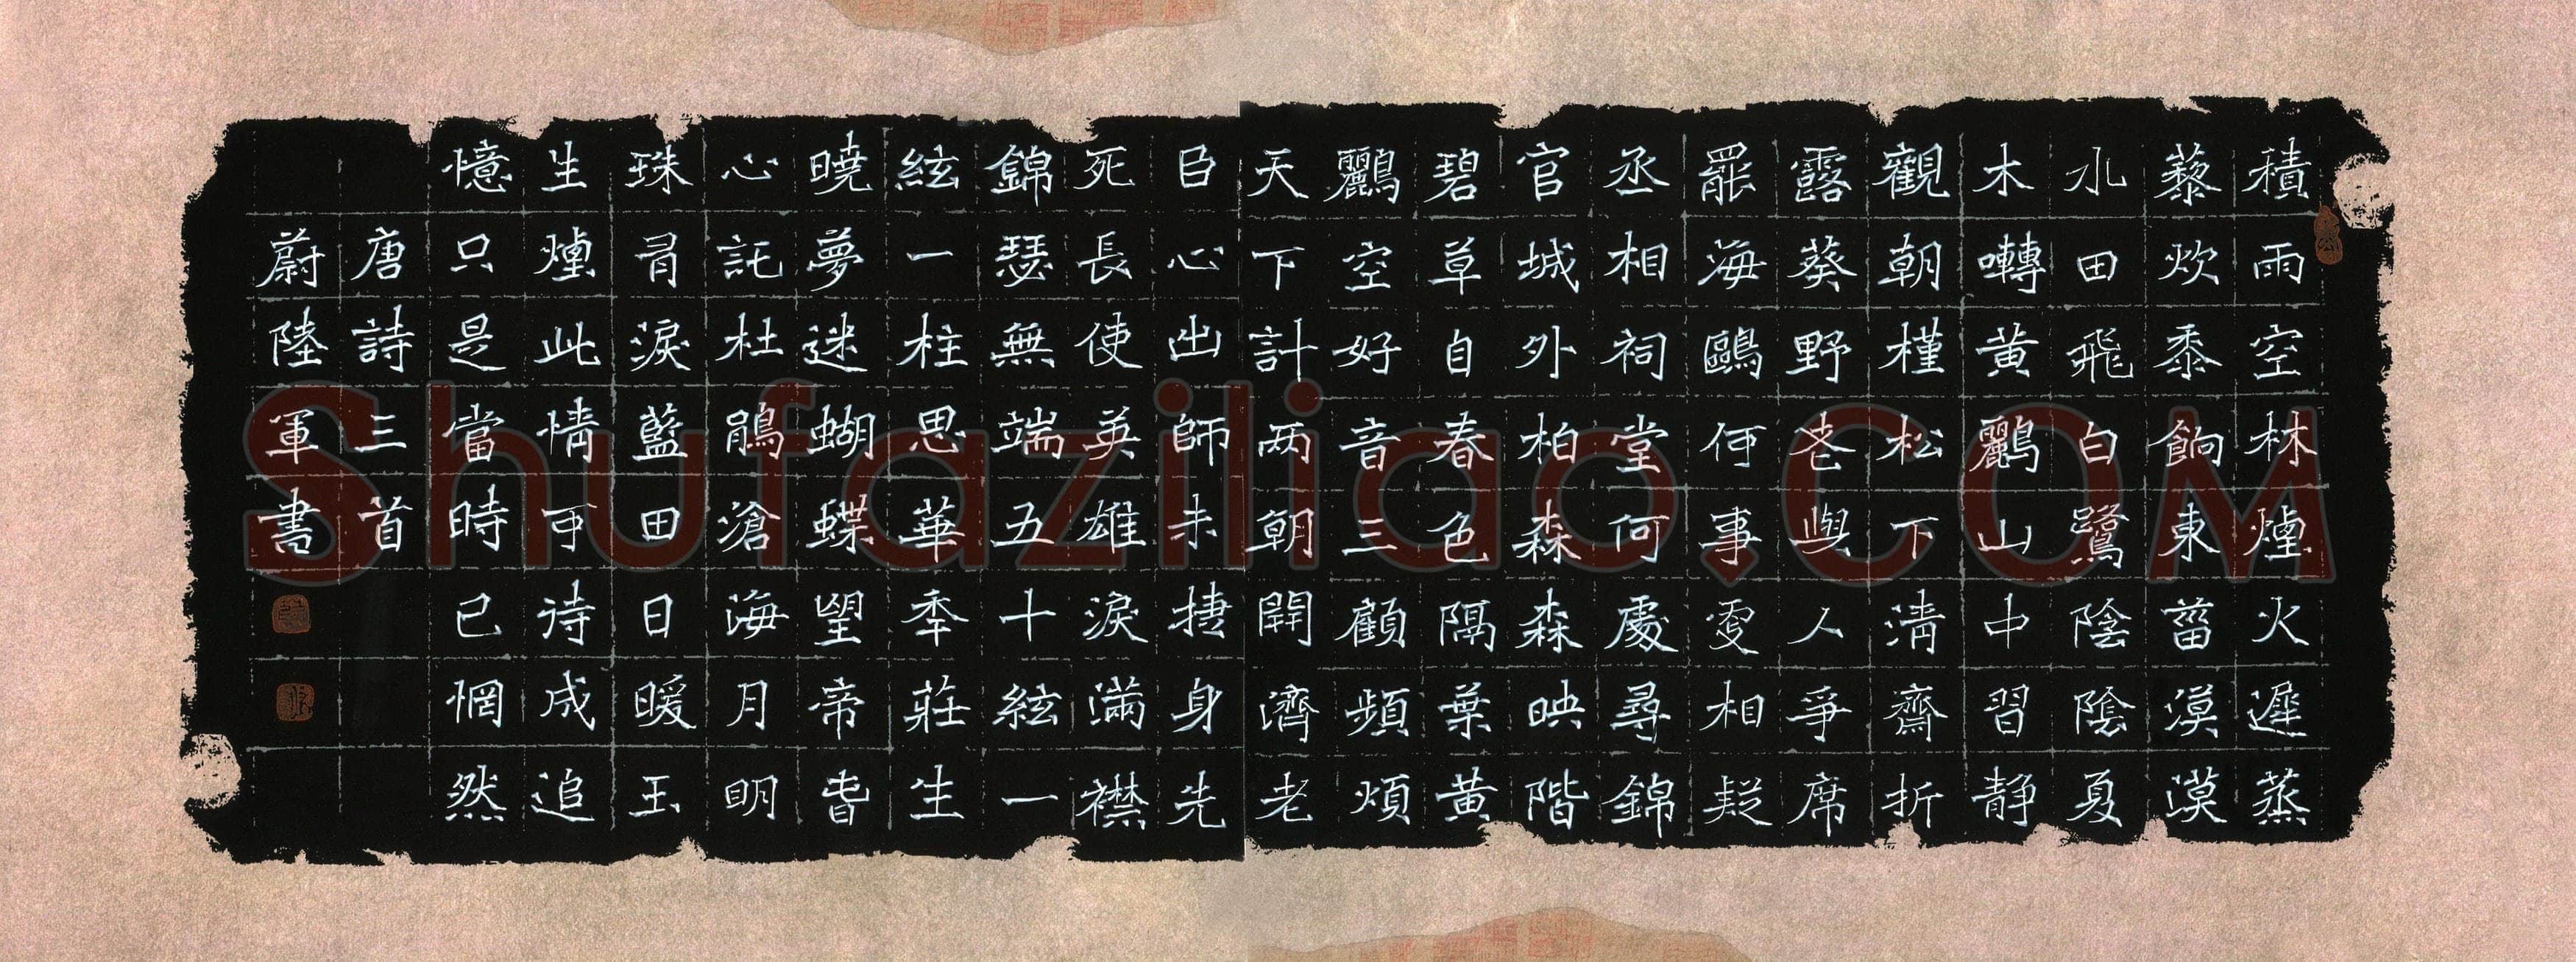 積雨空林煙火遲蒸
藜炊黍餉東菑漠漠
水田飛白鷺陰陰夏
木囀黃鸝山中習靜
觀朝槿松下清齋折
露葵野老與人爭席
罷海鷗何事更相疑
丞相祠堂何處尋錦
官城外柏森森映階
碧草自春色隔葉黃
鸝空好音三顧頻煩
天下計兩朝開濟老
臣心出師未捷身先
死長使英雄淚滿襟
錦瑟無端五十絃一
絃一柱思華年莊生
曉夢迷蝴蝶望帝春
心託杜鵑滄海月明
珠有淚藍田日暖玉
生煙此情可待成追
憶只是當時已惘然
唐詩三首
蔚陸軍書
Shufaziliao.COM